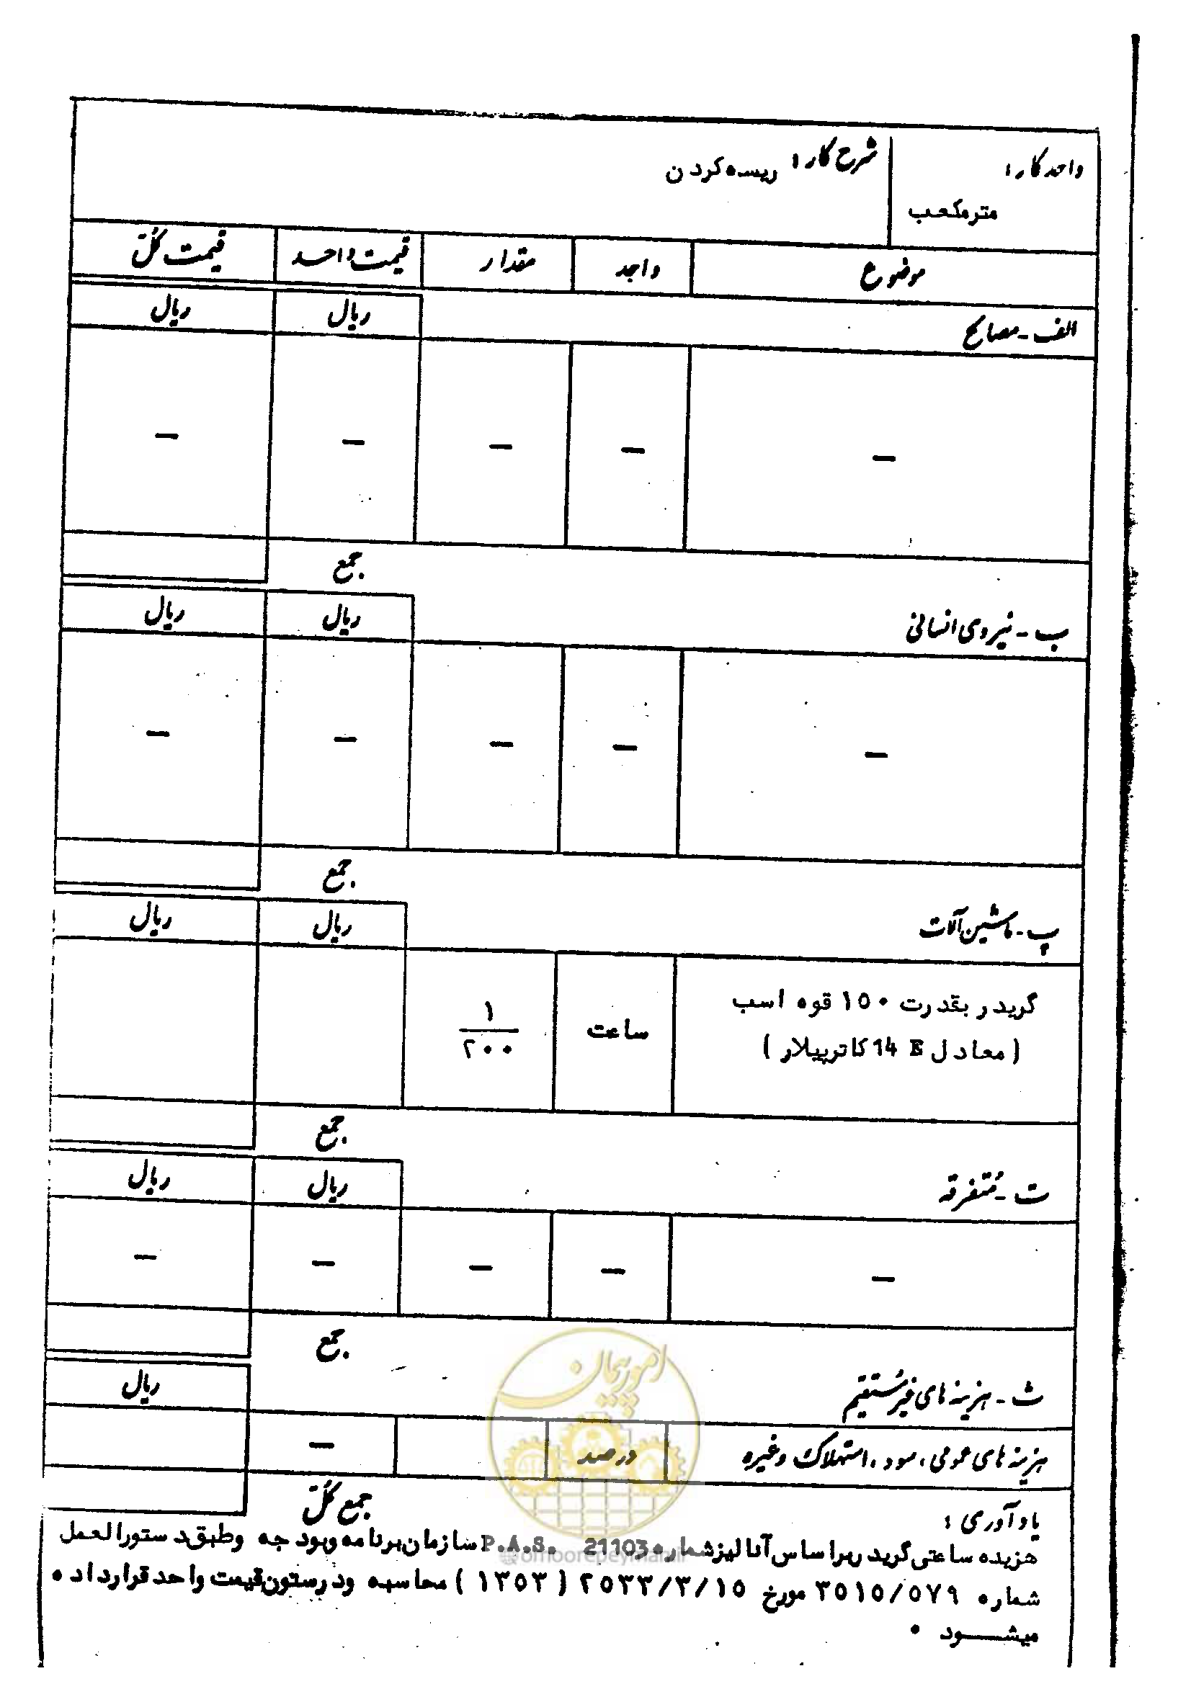 واحد کار :
مترمکعب
شرح کار : ریسه کردن
موضوع	واحد	مقدار	قیمت واحد	قیمت کل
الف - مصالح	ریال	ریال
—	—	—	—	—
جمع
ب - نیروی انسانی	ریال	ریال
—	—	—	—	—
جمع
پ - ماشین آلات	ریال	ریال
گریدر بقدرت ۱۵۰ قوه اسب	ساعت	۱/۲۰۰
( معادل 14 E کاترپیلار )
جمع
ت - متفرقه	ریال	ریال
—	—	—	—	—
جمع
ث - هزینه های غیرمستقیم	ریال
هزینه های عمومی ، سود ، استهلاک وغیره	درصد	—
جمع کل
امور پیمان
@omoorepeyman.ir
یادآوری :
هزیده ساعتی گرید ربرا ساس آنالیز شماره 21103 P.A.S. سازمان برنامه وبود جه وطبق د ستورالعمل
شماره ۳۵۱۵/۵۷۹ مورخ ۲۵۳۳/۳/۱۵ ( ۱۳۵۳ ) محاسبه ود رستون قیمت واحد قرارداده
میشود ۰